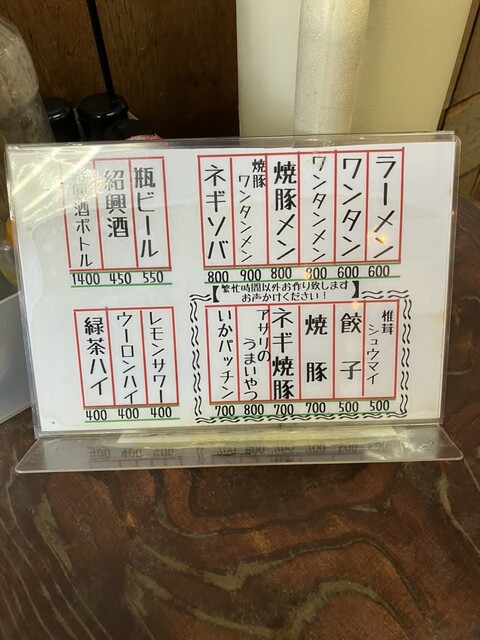 ラーメン 600
ワンタン 600
ワンタンメン 800
焼豚メン 800
焼豚ワンタンメン 900
ネギソバ 800
瓶ビール 550
紹興酒 450
紹興酒ボトル 1400
【繁忙時間以外お作り致します
お声かけください！】
椎茸シュウマイ 500
餃子 500
焼豚 700
ネギ焼豚 700
アサリのうまいやつ 800
いかパッチン 700
レモンサワー 400
ウーロンハイ 400
緑茶ハイ 400